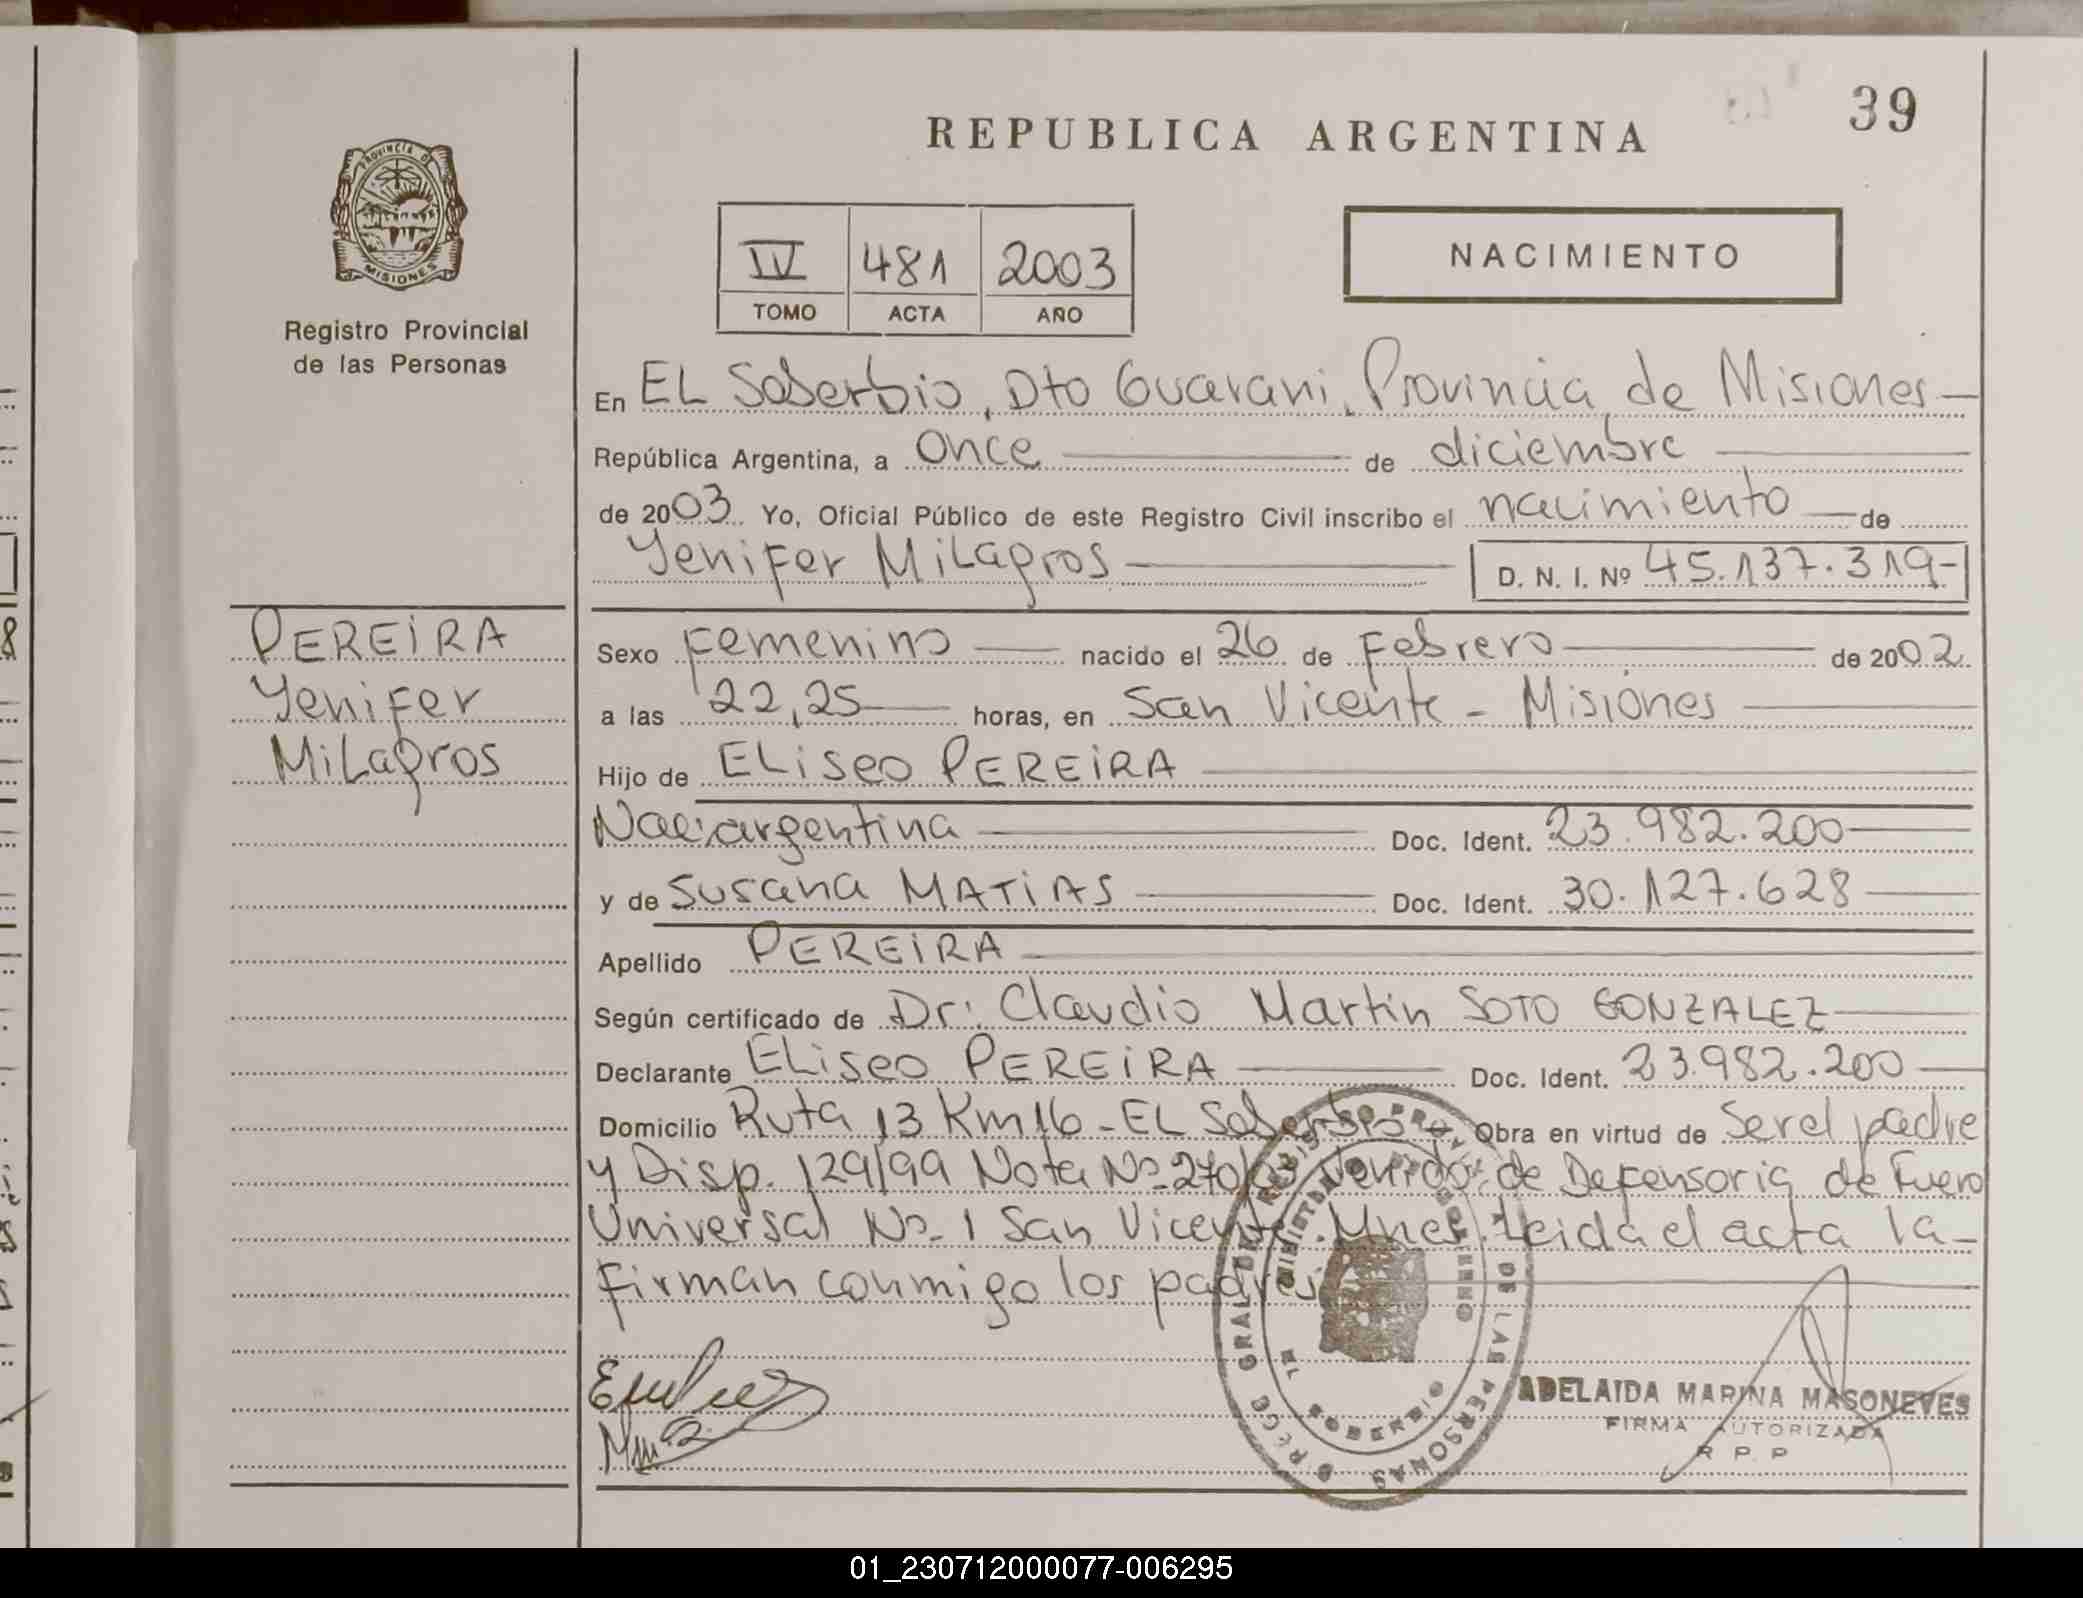 39
REPUBLICA ARGENTINA
PROVINCIA DE
MISIONES
Registro Provincial
de las Personas
IV 481 2003
TOMO ACTA AÑO
NACIMIENTO
En EL Soberbio, Dto Guarani, Provincia de Misiones
República Argentina, a once de diciembre
de 2003. Yo, Oficial Público de este Registro Civil inscribo el nacimiento de
Yenifer Milagros D. N. I. Nº 45.137.319-
PEREIRA
Yenifer
Milagros
Sexo Femenino nacido el 26 de Febrero de 2002
a las 22,25 horas, en San Vicente - Misiones
Hijo de Eliseo PEREIRA
Nac: argentina Doc. Ident. 23.982.200
y de Susana MATIAS Doc. Ident. 30.127.628
Apellido PEREIRA
Según certificado de Dr: Claudio Martin SOTO GONZALEZ
Declarante Eliseo PEREIRA Doc. Ident. 23.982.200
Domicilio Ruta 13 Km 16 - EL Soberbio - Obra en virtud de Ser el padre
y Disp. 129/99 Nota Nº 270/03 Venido de Defensoria de Fuero
Universal Nº 1 San Vicente. Mnes. Leida el acta la
firman conmigo los padres
ADELAIDA MARINA MASONEVES
FIRMA AUTORIZADA
R P P
EL SOBERBIO
01_230712000077-006295